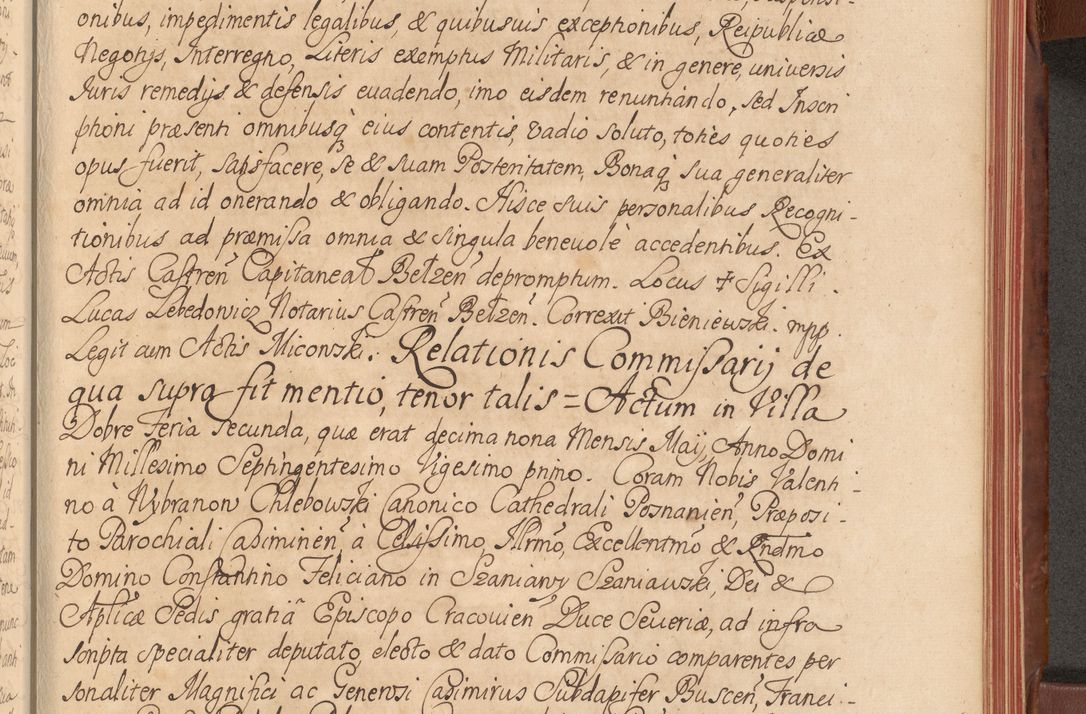 onibus, impedimentis legalibus, & quibusuis exceptionibus, Reipublicæ
Negotijs, Interregno, Literis exemptus Militaris, & in genere, universis
Iuris remedijs & defensis euadendo, imo eisdem renuntiando, sed Inscri
ptioni præsenti omnibusq̃ eius contentis, vadio soluto, toties quoties
opus fuerit, satisfacere, se & suam Posteritatem, Bonaq̃ sua generaliter
omnia ad id onerando & obligando. Hisce suis personalibus Recogni-
tionibus ad præmissa omnia & singula beneuolè accedentibus. Ex
Actis Castreñ Capitaneat Bełzeñ depromptum. Locus ✝ Sigilli.
Lucas Lebedowicz Notarius Castreñ Bełzeñ. Correxit Bieniewski. mpp.
Legit cum Actis Miconski. Relationis Commissarij de
qua supra fit mentio, tenor talis = Actum in Villa
Dobre Feria secunda, quæ erat decima nona Mensis Maij, Anno Domi
ni Millesimo Septingentesimo Vigesimo primo. Coram Nobis Valenti-
no à Wybranow Chlebowski Canonico Cathedrali Posnanieñ, Præposi-
to Parochiali Casimirieñ, à Celsissimo, Illrmo, Excellentmo & Rndmo
Domino Constantino Feliciano in Szaniawy Szaniawski, Dei &
Aplicæ Sedis gratiâ Episcopo Cracouieñ Duce Seueriæ, ad infra
scripta specialiter deputato, electo & dato Commissario comparentes per
sonaliter Magnifici ac Generosi Casimirus Subdapifer Busceñ, Franci-